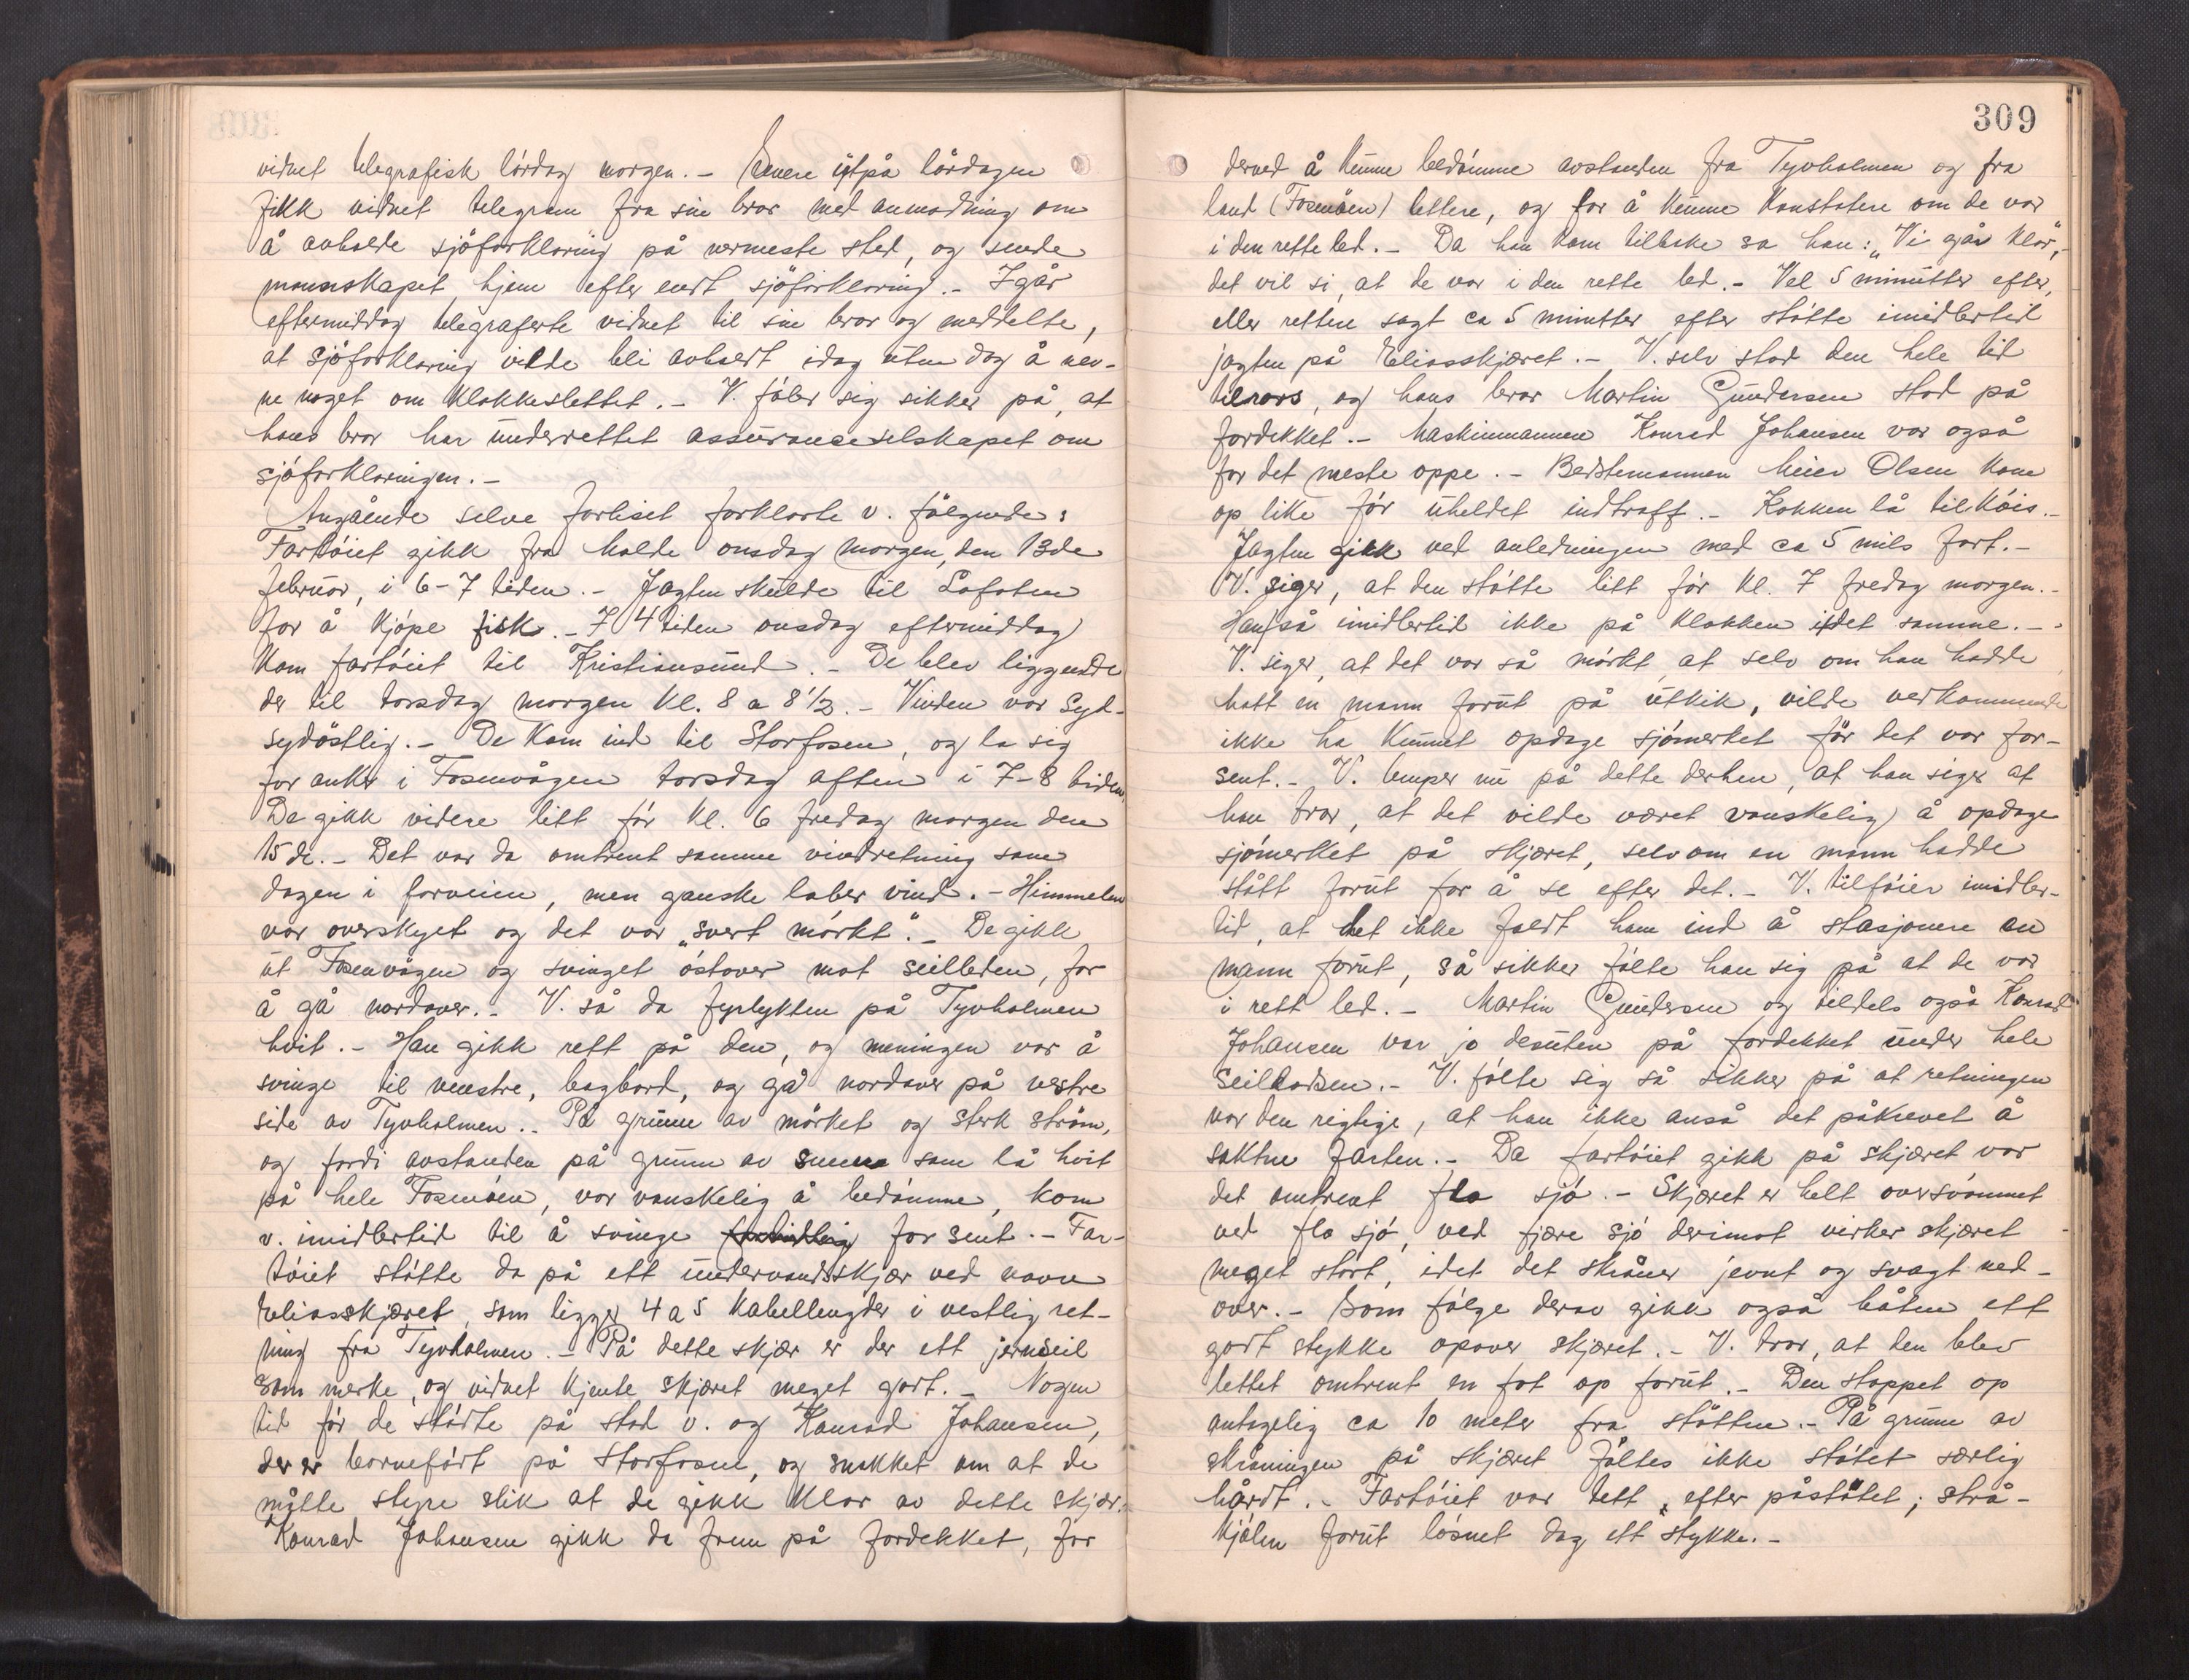 vidnet telegrafisk lördag morgen. - Senere utpå lördagen
fikk vidnet telegram fra sin bror med anmodning om
å avholde sjöforklaring på nermeste sted, og sende
mannskapet hjem efter endt sjöforklaring. - Igår
eftermiddag telegraferte vidnet til sin bror og meddelte,
at sjöforklaring vilde bli avholdt idag uten dog å nev-
ne noget om klokkeslettet. - V. föler sig sikker på, at
hans bror har underrettet assuranceselskapet om
sjöforklaringen. -
Angående selve forliset forklarte v. fölgende:
Fartöiet gikk fra Molde onsdag morgen, den 13de
februar, i 6-7 tiden. - Jagten skulde til Lofoten
for å kjöpe fisk. - I 4 tiden onsdag eftermiddag
kom fartöiet til Kristiansund. - De blev liggende
der til torsdag morgen kl. 8 a 8 1/2. - Vinden var syd-
sydöstlig. - De kom ind til Storfosen, og la sig
for anker i Fosenvågen torsdag aften i 7-8 tiden.
De gikk videre litt för kl. 6 fredag morgen den
15de. - Det var da omtrent samme vindretning som
dagen i forveien, men ganske laber vind. - Himmelen
var overskyet og det var "svert mörkt". - De gikk
ut Fosenvågen og svinget östover mot seilleden, for
å gå nordover. - V. så da fyrlykten på Tyvholmen
hvit. - Han gikk rett på den, og meningen var å
svinge til venstre, bagbord, og gå nordover på vestre
side av Tyvholmen. - På grunn av mörket og sterk ström,
og fordi avstanden på grunn av sneen som lå hvit
på hele Fosenöen, var vanskelig å bedömme, kom
v. imidlertid til å svinge for sent. - Far-
töiet stötte da på ett undervandsskjær ved navn
Eliasskjæret, som ligger 4 a 5 kabellengder i vestlig ret-
ning fra Tyvholmen. - På dette skjær er der ett jernseil
som merke, og vidnet kjente skjæret meget godt. - Nogen
tid för de stödte på stod v. og Konrad Johansen,
der er barnefödt på Storfosen, og snakket om at de
måtte styre slik at de gikk klar av dette skjær. -
Konrad Johansen gikk da frem på fordekket, for
309
derved å kunne bedömme avstanden fra Tyvholmen og fra
land (Fosenöen) lettere, og for å kunne konstatere om de var
i den rette led. - Da han kom tilbake sa han: "Vi går klar", -
det vil si, at de var i den rette led. - Vel 5 minutter efter,
eller rettere sagt ca 5 minutter efter stötte imidlertid
jagten på Eliasskjæret. - V. selv stod den hele tid
tilrors, og hans bror Martin Gundersen stod på
fordekket. - Maskinmannen Konrad Johansen var også
for det meste oppe. - Bedstemannen Meier Olsen kom
op like för uheldet indtraff. - Kokken lå tilköis. -
Jagten gikk ved anledningen med ca 5 mils fart. -
V. siger, at den stötte litt för kl. 7 fredag morgen. -
Han så imidlertid ikke på klokken i det samme. -
V. siger, at det var så mörkt, at selv om han hadde
hatt en mann forut på utkik, vilde vedkommende
ikke ha kunnet opdage sjömerket för det var for-
sent. - V. lemper nu på dette derhen, at han siger at
han tror, at det vilde været vanskelig å opdage
sjömerket på skjæret, selv om en mann hadde
stått forut for å se efter det. - V. tilföier imidler-
tid, at det ikke faldt ham ind å stasjonere en
mann forut, så sikker fölte han sig på at de var
i rett led. - Martin Gundersen og tildels også Konrad
Johansen var jo desuten på fordekket under hele
seiladsen. - V. fölte sig så sikker på at retningen
var den rigtige, at han ikke anså det påkrevet å
saktne farten. - Da fartöiet gikk på skjæret var
det omtrent flo sjö. - Skjæret er helt oversvömmet
ved flo sjö, ved fjære sjö derimot virker skjæret
meget stort, idet det skråner jevnt og svagt ned-
over. - Som fölge derav gikk også båten ett
godt stykke opover skjæret. - V. tror, at den blev
lettet omtrent en fot op forut. - Den stoppet op
antagelig ca 10 meter fra stötten. - På grunn av
skråningen på skjæret föltes ikke stötet særlig
hårdt. - Fartöiet var tett efter påstötet; strå-
kjölen forut lösnet dog ett stykke. -